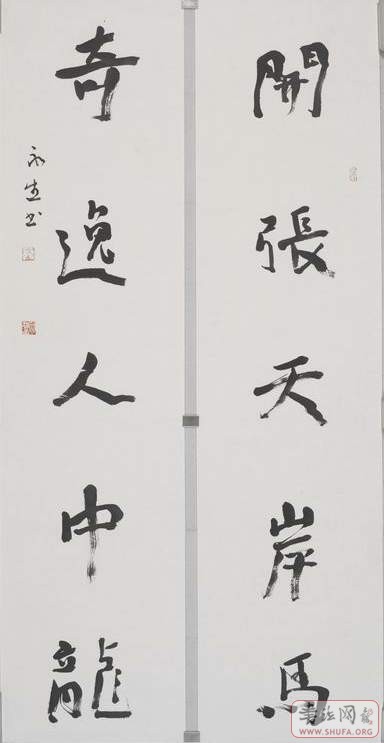 開張天岸馬
奇逸人中龍
永生书
书法网
WWW.SHUFA.ORG